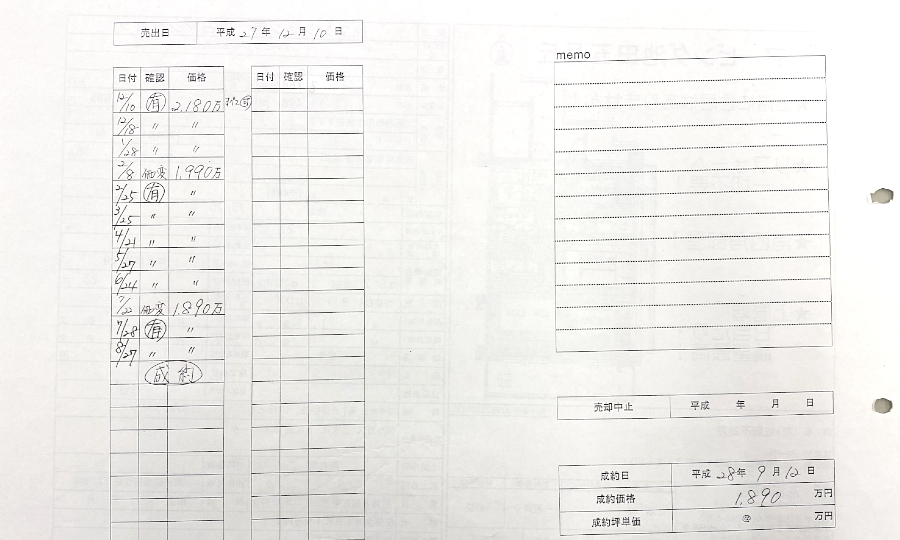 売出日 平成 27 年 12 月 10 日
日付 確認 価格
12/10 有 2,180万
12/18 〃 〃
1/28 〃 〃
2/8 価変 1,990万
2/25 有 〃
3/25 〃 〃
4/21 〃 〃
5/27 〃 〃
6/24 〃 〃
7/22 価変 1,890万
7/28 有 〃
8/27 〃 〃
成約
日付 確認 価格
memo
売却中止 平成 年 月 日
成約日 平成 28 年 9 月 12 日
成約価格 1,890 万円
成約坪単価 @ 万円